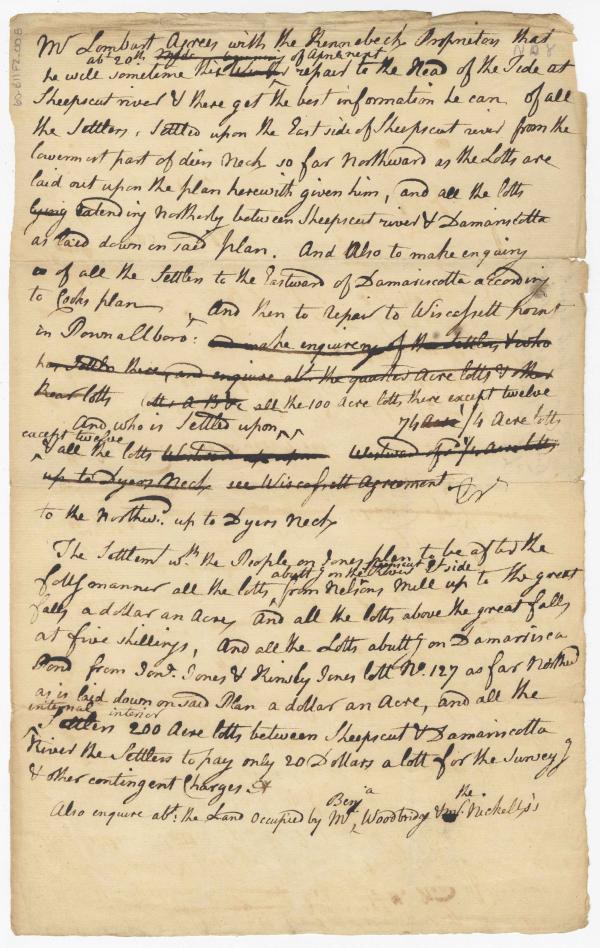 Mr Lombart Agrees with the Kennebeck Proprietors that
abt 20th of April next
he will sometime this Winter repair to the Head of the Tide at
Sheepscut river & there get the best information he can of all
the Settlers, Settled upon the East side of Sheepscut river from the
lowermost part of diers Neck so far Northward as the Lotts are
laid out upon the plan herewith given him, and all the lotts
lying Extending Northerly between Sheepscut river & Damariscotta
as laid down on said plan. And Also to make enquiry
of all the Settlers to the Eastward of Damariscotta according
to Cooks plan, And then to repair to Wiscassett point
in Pownallboro: to make enquirey of the Settlers & who
has Settled there, and enquire abt the quarter Acre lotts & other
Rear lotts all the 100 Acre lotts there except twelve
And who is Settled upon 74 Acre 1/4 Acre lotts
except twelve
& all the lotts Westward up upon Westward of sd 1/4 Acre lotts
up to Dyers Neck see Wiscassett Agreement
to the Northwd. up to Dyers Neck
The Settlemt wth the People on Jones plan to be after the
abuttg on the Sheepscut Et side
follg manner all the lotts from Nelsons Mill up to the great
falls a dollar an Acre, And all the lotts above the great falls
at five shillings, And all the Lotts abuttg on Damarisca
Pond from Jond. Jones & Kinsly Jones lott No. 127 as far Northwd
as is laid down on said Plan a dollar an Acre, and all the
internal interior
Settlers 200 Acre lotts between Sheepscut & Damariscotta
River the Settlers to pay only 20 Dollars a lott for the Surveyg
& other contingent Charges
Benja the
Also enquire abt. the Land Occupied by Mr Woodbridge & Mr. Nickells's
60-611F2.008
ND8